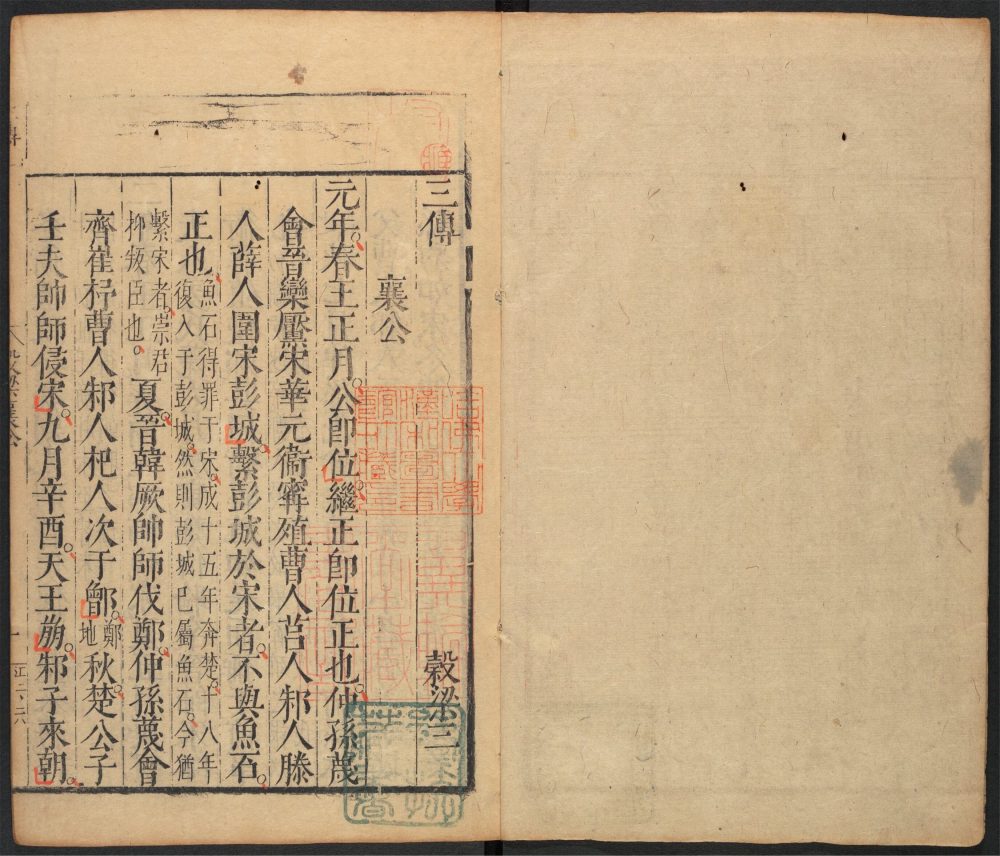 三傳　穀梁三
襄公
元年春王正月公卽位繼正卽位正也仲孫蔑
會晉欒黶宋華元衞甯殖曹人莒人邾人滕
人薛人圍宋彭城繫彭城於宋者不與魚石
正也魚石得罪于宋成十五年奔楚十八年
復入于彭城然則彭城已屬魚石今猶
繫宋者崇君
抑叛臣也夏晉韓厥帥師伐鄭仲孫蔑會
齊崔杼曹人邾人杞人次于鄫鄭地秋楚公子
壬夫帥師侵宋九月辛酉天王崩邾子來朝